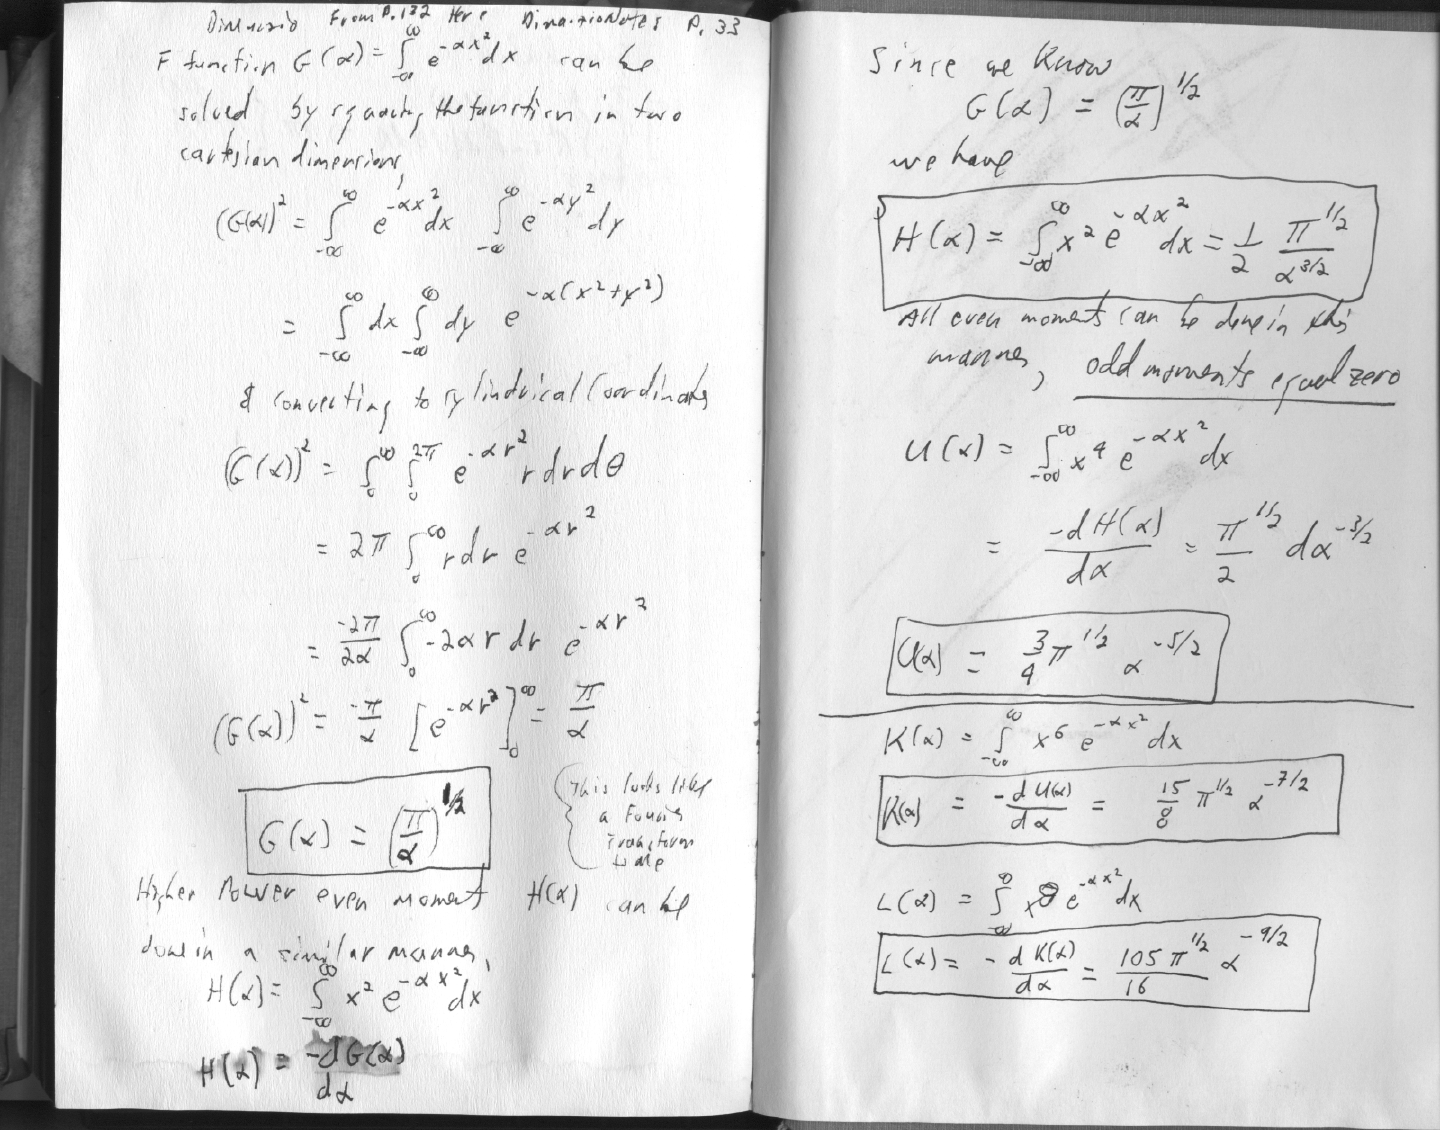 From P.132 Here Notes P. 33
F function G(α) = ∫_{-∞}^{∞} e^{-αx²} dx can be
solved by squaring the function in two
cartesian dimensions,
(G(α))² = ∫_{-∞}^{∞} e^{-αx²} dx ∫_{-∞}^{∞} e^{-αy²} dy
= ∫_{-∞}^{∞} dx ∫_{-∞}^{∞} dy e^{-α(x²+y²)}
& converting to cylindrical Coordinates
(G(α))² = ∫_0^∞ ∫_0^{2π} e^{-αr²} r dr dθ
= 2π ∫_0^∞ r dr e^{-αr²}
= -2π/2α ∫_0^∞ -2αr dr e^{-αr²}
(G(α))² = -π/α [e^{-αr²}]_0^∞ = π/α
G(α) = (π/α)^{1/2}
This looks like
a Fourier
Transform
to me
Higher Power even moment H(α) can be
done in a similar manner,
H(α) = ∫_{-∞}^{∞} x² e^{-αx²} dx
H(α) = -dG(α)/dα
Since we Know
G(α) = (π/α)^{1/2}
we have
H(α) = ∫_{-∞}^{∞} x² e^{-αx²} dx = 1/2 π^{1/2}/α^{3/2}
All even moments can be done in this
manner, odd moments equal zero
U(α) = ∫_{-∞}^{∞} x⁴ e^{-αx²} dx
= -dH(α)/dα = π^{1/2}/2 dα^{-3/2}
U(α) = 3/4 π^{1/2} α^{-5/2}
K(α) = ∫_{-∞}^{∞} x⁶ e^{-αx²} dx
K(α) = -dU(α)/dα = 15/8 π^{1/2} α^{-7/2}
L(α) = ∫_{-∞}^{∞} x⁸ e^{-αx²} dx
L(α) = -dK(α)/dα = 105 π^{1/2}/16 α^{-9/2}